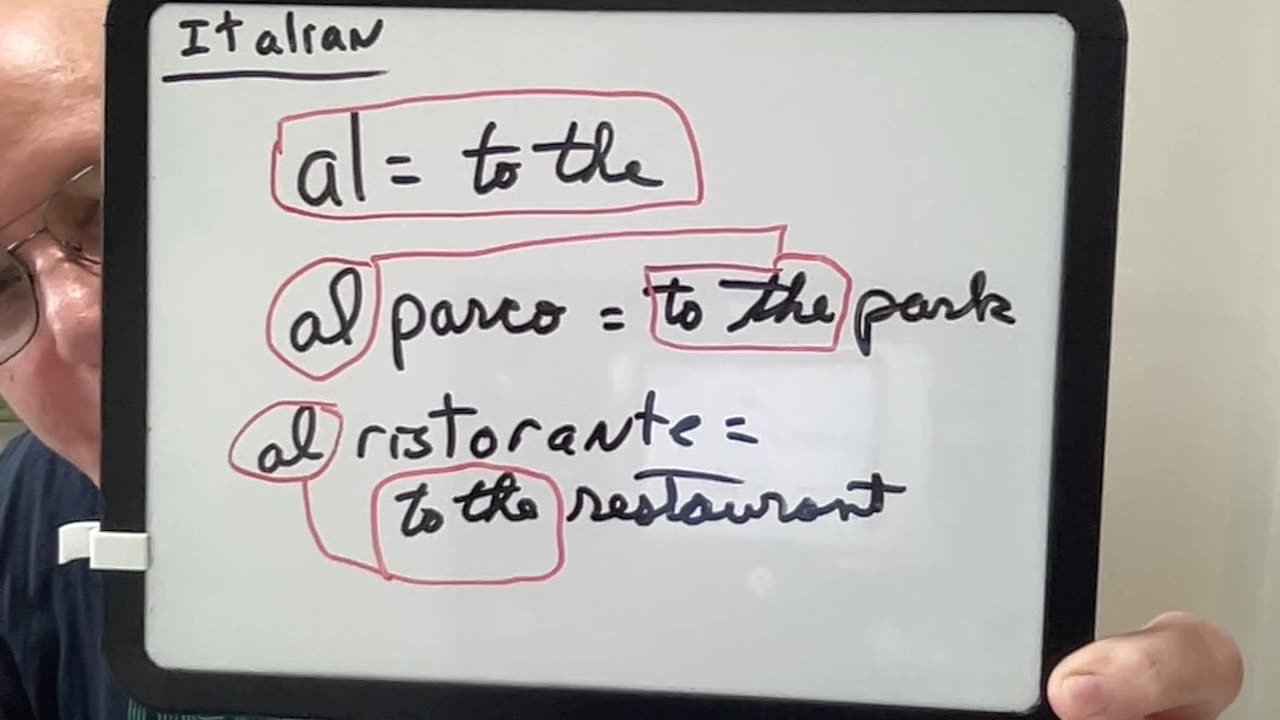 Italian
al = to the
al parco = to the park
al ristorante =
to the restaurant